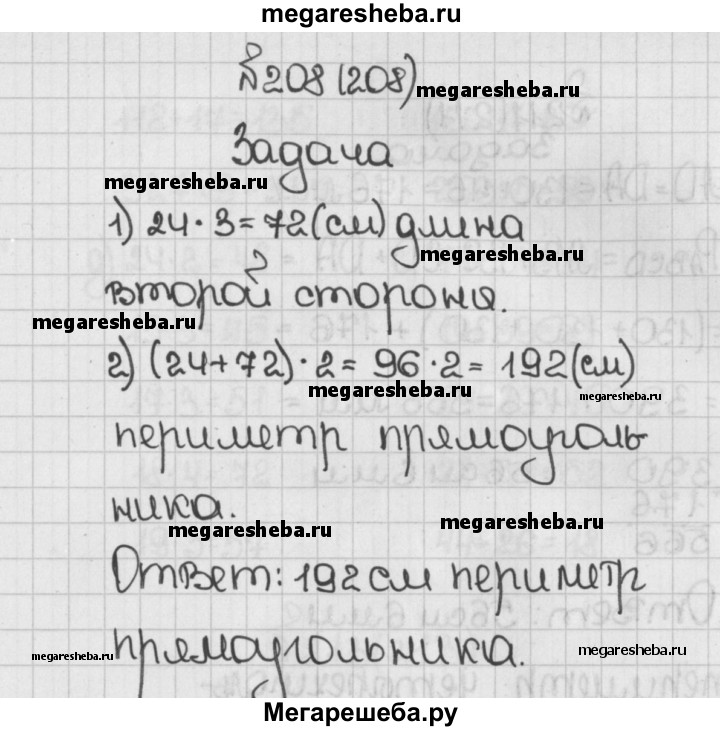 megaresheba.ru
№208 (208) megaresheba.ru
Задача
megaresheba.ru
1) 24·3=72(см) длина
megaresheba.ru
второй стороны.
megaresheba.ru
2) (24+72)·2=96·2=192(см)
megaresheba.ru
megaresheba.ru
периметр прямоуголь
ника.
megaresheba.ru
megaresheba.ru
Ответ: 192см периметр
прямоугольника.
megaresheba.ru
megaresheba.ru
Мегарешеба.ру